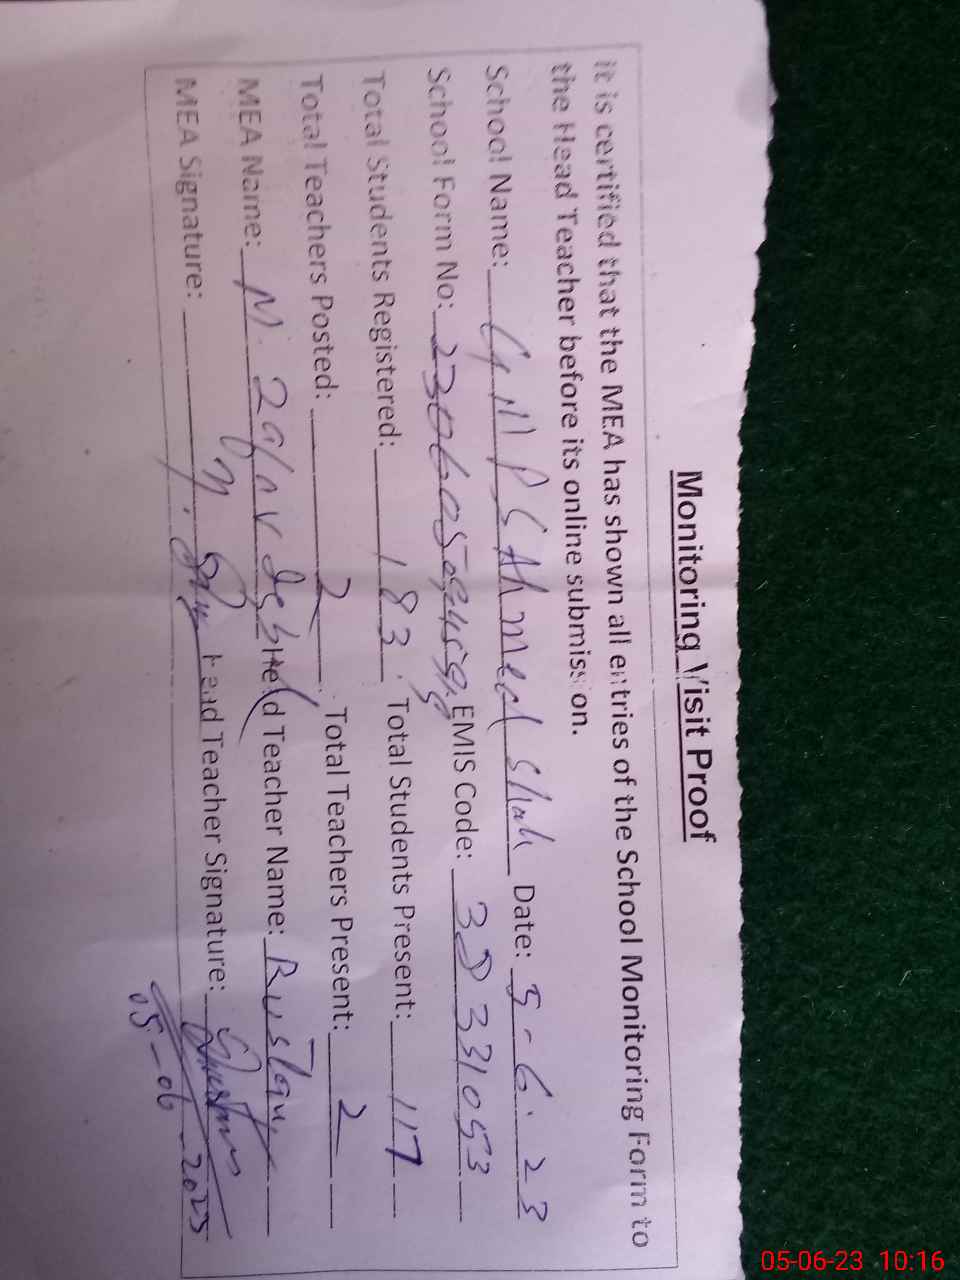 Monitoring Visit Proof
It is certified that the MEA has shown all entries of the School Monitoring Form to
the Head Teacher before its online submission.
School Name: PS Ahmed Shah Date: 5-6.23
School Form No: EMIS Code: 38331053
Total Students Registered: 183. Total Students Present: 117
Total Teachers Posted: 2. Total Teachers Present: 2
MEA Name: M. Zafar Head Teacher Name: Rustam
MEA Signature: Head Teacher Signature:
05-06-23 10:16